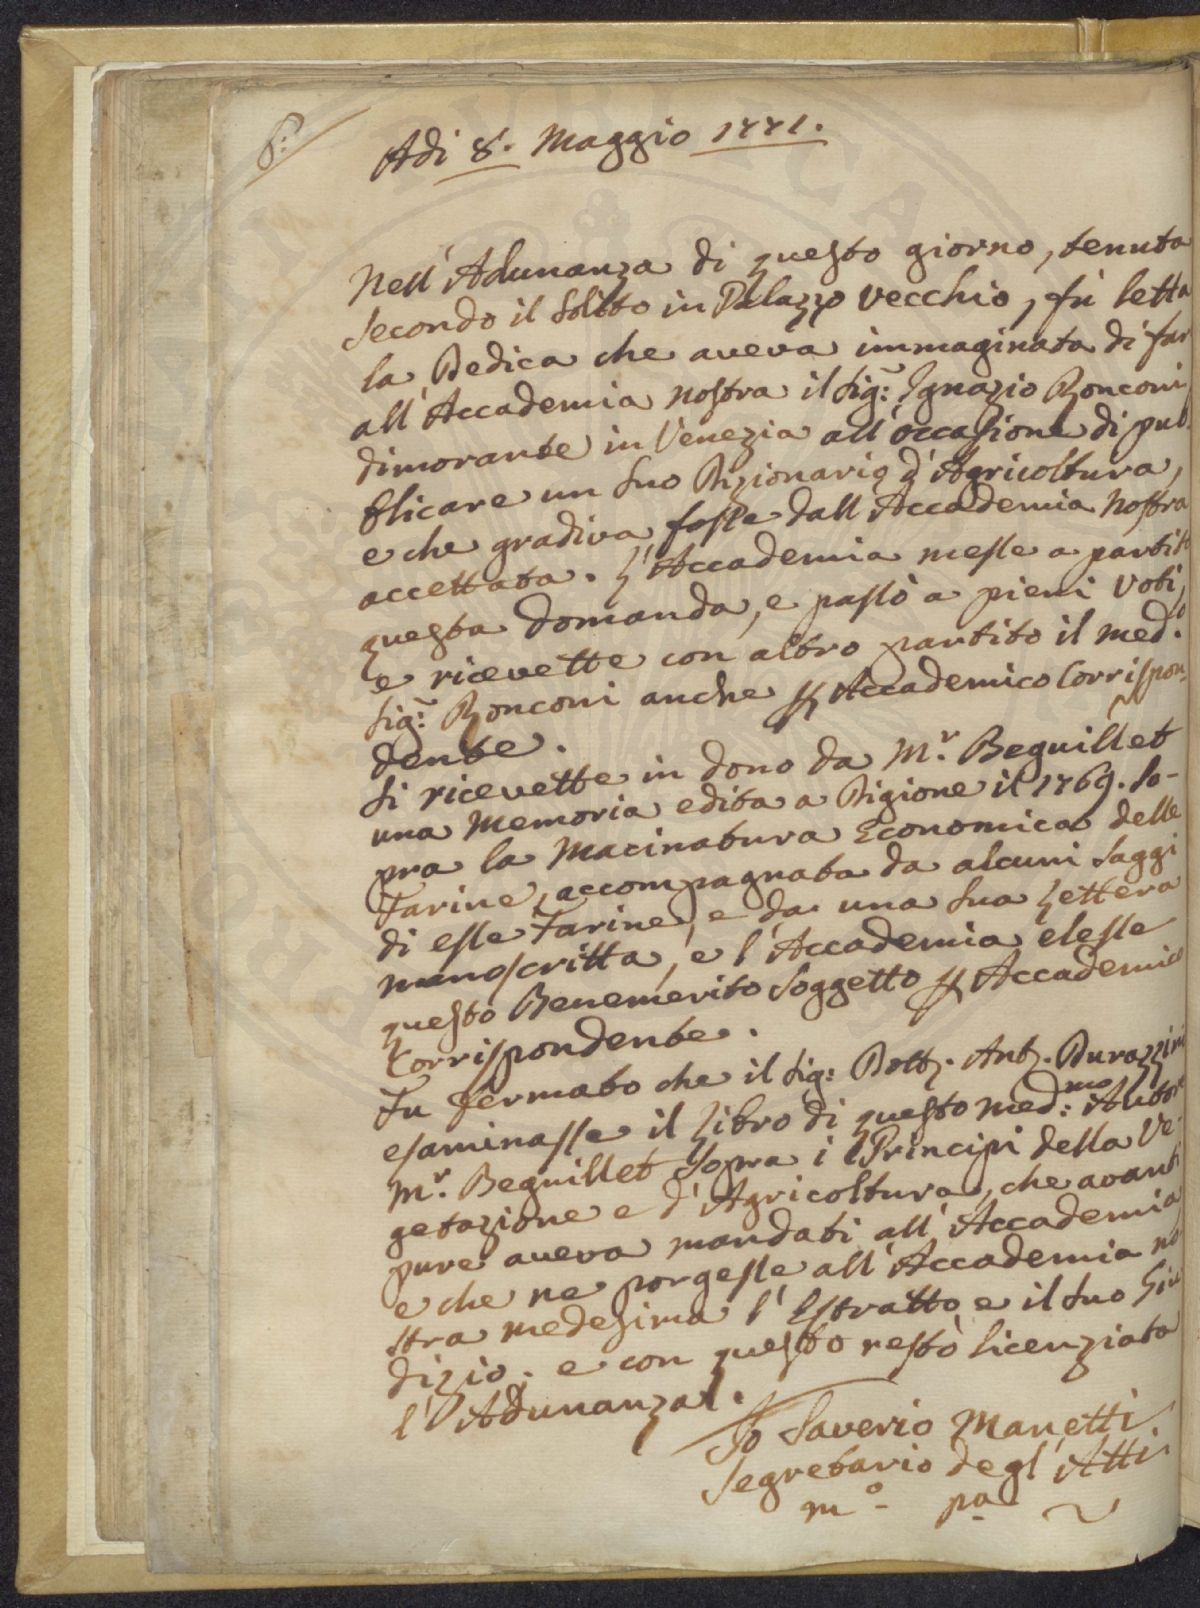 6:
Adi 8. Maggio 1771.
Nell'Adunanza di questo giorno, tenuta
secondo il solito in Palazzo vecchio, fù letta
la Dedica che aveva immaginata di far
all'Accademia nostra il Sig.r Ignazio Ronconi
dimorante in Venezia all'occasione di pub-
blicare un suo Dizionario d'Agricoltura,
e che gradiva fosse dall Accademia nostra
accettata. L'Accademia messe a partito
questa domanda, e passò a pieni voti,
e ricevette con altro partito il med.o
Sig.r Ronconi anche p Accademico Corrispon-
dente.
Si ricevette in dono da M.r Beguillet
una Memoria edita a Digione il 1769. so-
pra la Macinatura Economica delle
Farine, accompagnata da alcuni saggi
di esse Farine, e da una sua Lettera
manoscritta, e l'Accademia elesse
questo Benemerito Soggetto p Accademico
Corrispondente.
Fu fermato che il Sig: Dott. Ant. Durazzini
esaminasse il Libro di questo med:mo Autore
M.r Beguillet sopra i Principi della Ve-
getazione e d'Agricoltura, che avanti
pure aveva mandati all'Accademia
e che ne porgesse all'Accademia no-
stra medesima l'Estratto e il suo Giu
dizio; e con questo restò licenziata
l'Adunanza.
Io Saverio Manetti
Segretario degl'Atti
m.o pa